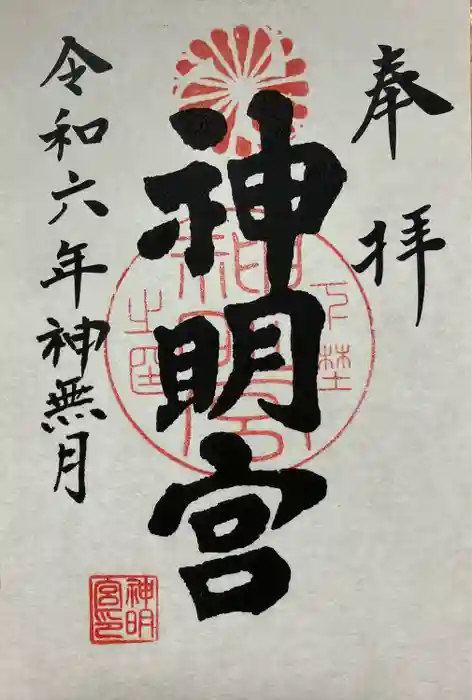 奉拝
神明宮
令和六年神無月
神明宮印